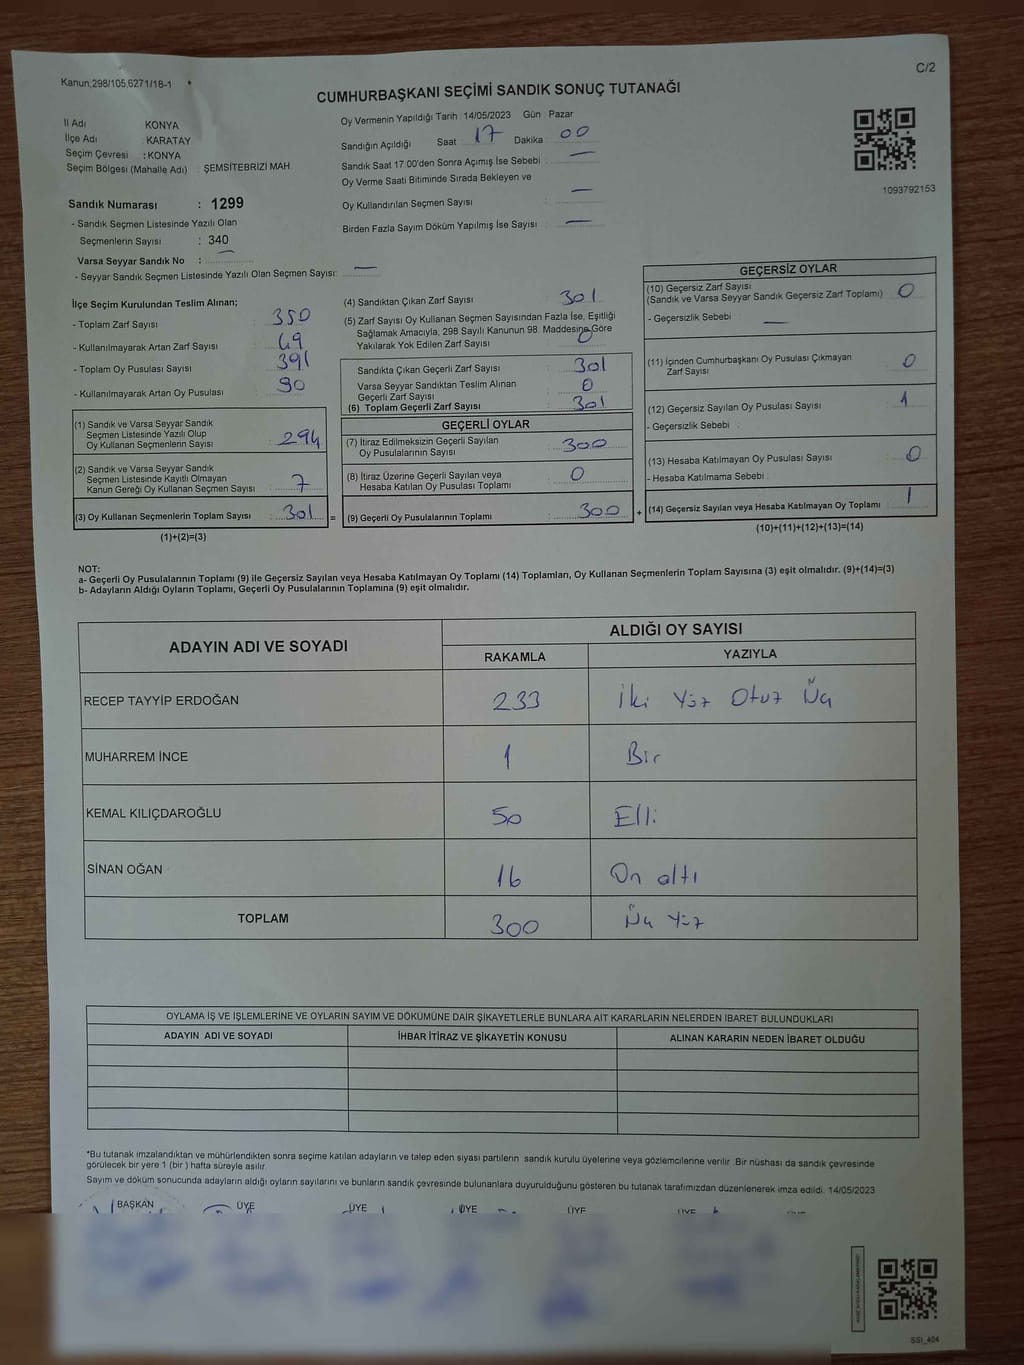 C/2
Kanun,298/105,6271/18-1
CUMHURBAŞKANI SEÇİMİ SANDIK SONUÇ TUTANAĞI
İl Adı KONYA
İlçe Adı KARATAY
Seçim Çevresi : KONYA
Seçim Bölgesi (Mahalle Adı) : ŞEMSİTEBRİZİ MAH.
Sandık Numarası : 1299
- Sandık Seçmen Listesinde Yazılı Olan
Seçmenlerin Sayısı : 340
Varsa Seyyar Sandık No : —
- Seyyar Sandık Seçmen Listesinde Yazılı Olan Seçmen Sayısı: —
Oy Vermenin Yapıldığı Tarih : 14/05/2023 Gün : Pazar
Sandığın Açıldığı Saat 17 Dakika : 00
Sandık Saat 17:00'den Sonra Açımış İse Sebebi : —
Oy Verme Saati Bitiminde Sırada Bekleyen ve
Oy Kullandırılan Seçmen Sayısı : —
Birden Fazla Sayım Döküm Yapılmış İse Sayısı : —
1093792153
İlçe Seçim Kurulundan Teslim Alınan;
- Toplam Zarf Sayısı : 350
- Kullanılmayarak Artan Zarf Sayısı : 49
- Toplam Oy Pusulası Sayısı : 391
- Kullanılmayarak Artan Oy Pusulası : 90
(1) Sandık ve Varsa Seyyar Sandık
Seçmen Listesinde Yazılı Olup
Oy Kullanan Seçmenlerin Sayısı : 294
(2) Sandık ve Varsa Seyyar Sandık
Seçmen Listesinde Kayıtlı Olmayan
Kanun Gereği Oy Kullanan Seçmen Sayısı : 7
(3) Oy Kullanan Seçmenlerin Toplam Sayısı : 301 =
(1)+(2)=(3)
(4) Sandıktan Çıkan Zarf Sayısı : 301
(5) Zarf Sayısı Oy Kullanan Seçmen Sayısından Fazla İse, Eşitliği
Sağlamak Amacıyla, 298 Sayılı Kanunun 98. Maddesine Göre
Yakılarak Yok Edilen Zarf Sayısı : 0
Sandıkta Çıkan Geçerli Zarf Sayısı : 301
Varsa Seyyar Sandıktan Teslim Alınan
Geçerli Zarf Sayısı : 0
(6) Toplam Geçerli Zarf Sayısı : 301
GEÇERLİ OYLAR
(7) İtiraz Edilmeksizin Geçerli Sayılan
Oy Pusulalarının Sayısı : 300
(8) İtiraz Üzerine Geçerli Sayılan veya
Hesaba Katılan Oy Pusulası Toplamı : 0
(9) Geçerli Oy Pusulalarının Toplamı : 300 +
GEÇERSİZ OYLAR
(10) Geçersiz Zarf Sayısı
(Sandık ve Varsa Seyyar Sandık Geçersiz Zarf Toplamı) : 0
- Geçersizlik Sebebi : —
(11) İçinden Cumhurbaşkanı Oy Pusulası Çıkmayan
Zarf Sayısı : 0
(12) Geçersiz Sayılan Oy Pusulası Sayısı : 1
- Geçersizlik Sebebi :
(13) Hesaba Katılmayan Oy Pusulası Sayısı : 0
- Hesaba Katılmama Sebebi :
(14) Geçersiz Sayılan veya Hesaba Katılmayan Oy Toplamı : 1
(10)+(11)+(12)+(13)=(14)
NOT:
a- Geçerli Oy Pusulalarının Toplamı (9) ile Geçersiz Sayılan veya Hesaba Katılmayan Oy Toplamı (14) Toplamları, Oy Kullanan Seçmenlerin Toplam Sayısına (3) eşit olmalıdır. (9)+(14)=(3)
b- Adayların Aldığı Oyların Toplamı, Geçerli Oy Pusulalarının Toplamına (9) eşit olmalıdır.
ADAYIN ADI VE SOYADI ALDIĞI OY SAYISI
RAKAMLA YAZIYLA
RECEP TAYYİP ERDOĞAN 233 İki Yüz Otuz Üç
MUHARREM İNCE 1 Bir
KEMAL KILIÇDAROĞLU 50 Elli
SİNAN OĞAN 16 On altı
TOPLAM 300 Üç Yüz
OYLAMA İŞ VE İŞLEMLERİNE VE OYLARIN SAYIM VE DÖKÜMÜNE DAİR ŞİKAYETLERLE BUNLARA AİT KARARLARIN NELERDEN İBARET BULUNDUKLARI
ADAYIN ADI VE SOYADI İHBAR İTİRAZ VE ŞİKAYETİN KONUSU ALINAN KARARIN NEDEN İBARET OLDUĞU
*Bu tutanak imzalandıktan ve mühürlendikten sonra seçime katılan adayların ve talep eden siyasi partilerin sandık kurulu üyelerine veya gözlemcilerine verilir. Bir nüshası da sandık çevresinde
görülecek bir yere 1 (bir ) hafta süreyle asılır.
Sayım ve döküm sonucunda adayların aldığı oyların sayılarını ve bunların sandık çevresinde bulunanlara duyurulduğunu gösteren bu tutanak tarafımızdan düzenlenerek imza edildi. 14/05/2023
BAŞKAN ÜYE ÜYE ÜYE ÜYE ÜYE
SSI_404